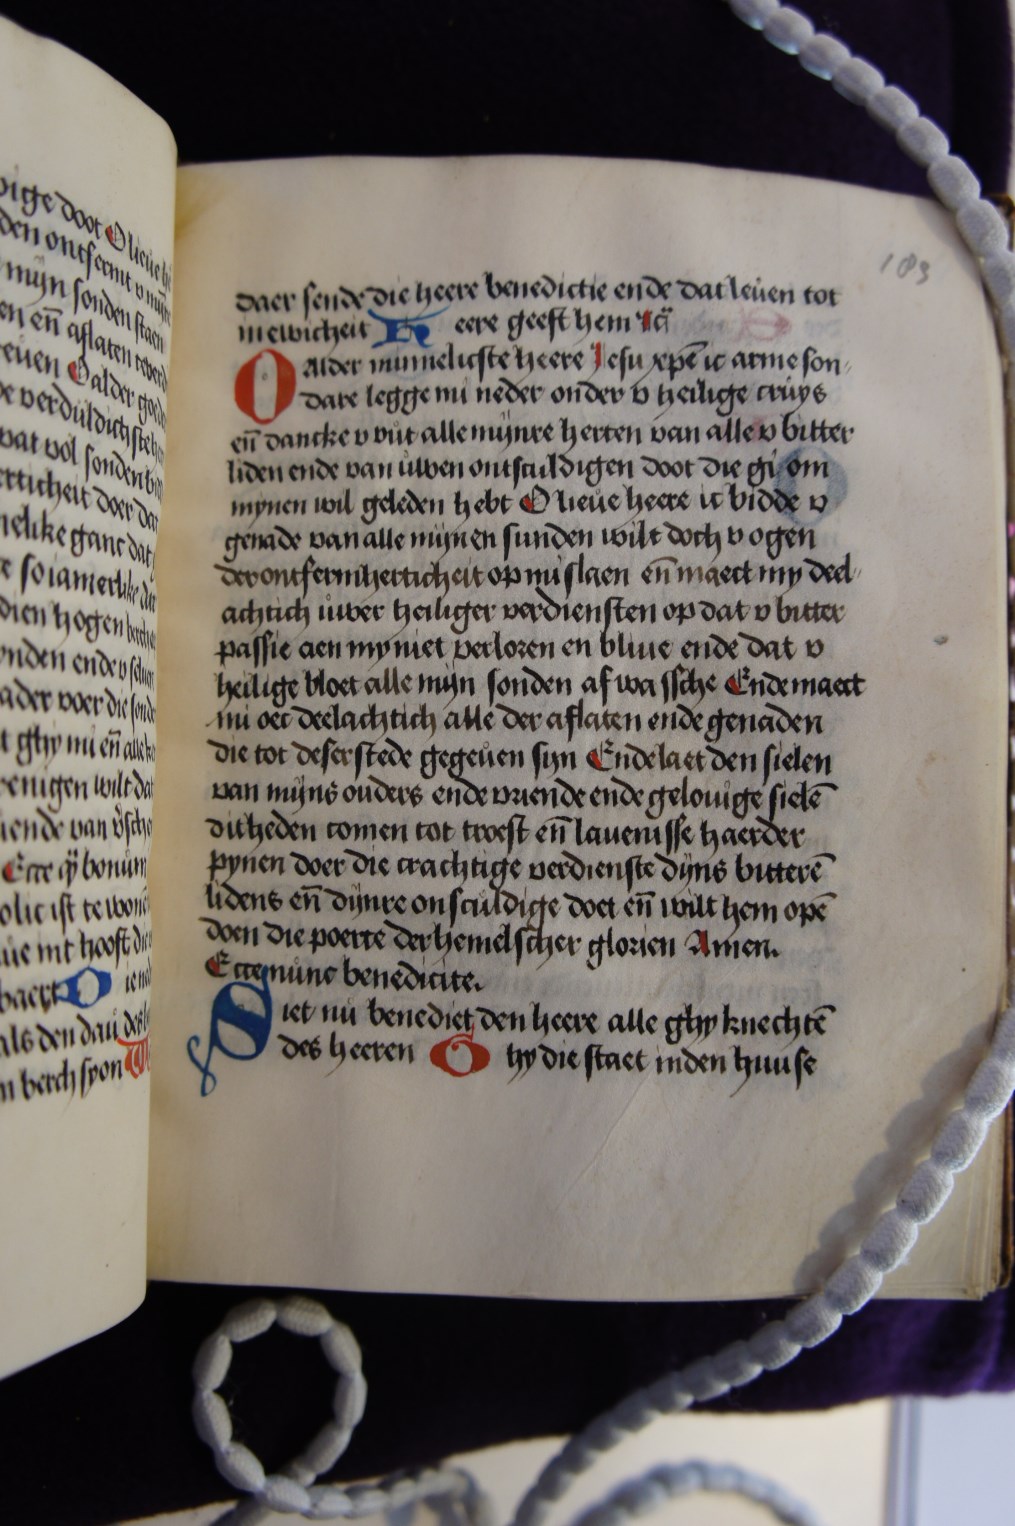 vige doot O lieue he
den ontfermt v mijn
mijn sonden staen
en en̄ aflaten
euen O alder goed
verduldich
wat vol sonden bin
erticheit doer dat
melike ganc dat
so iamerlike
dien hogen berch
onden ende v
ader voer die sond
t ghy mi en̄ alle
enigen wilt dat
iende van
Ecce q̄ bonum
olic ist te wonē
ue int hooft die
baert D ien
als den dau des
n berch syon W
183
daer sende die heere benedictie ende dat leuen tot
in ewicheit H eere geeft hem
O alder minnelicste heere Iesu xpē ic arme son-
dare legge mi neder onder v heilige cruys
en̄ dancke v vut alle mijnre herten van alle v bitter
liden ende van uwen ontsculdigen doot die gi om
mynen wil geleden hebt O lieue heere ic bidde v
genade van alle mijnen sunden wilt doch v ogen
der ontfermherticheit op mi slaen en̄ maect my deel-
achtich uwer heiliger verdiensten op dat v bitter
passie aen my niet verloren en bliue ende dat v
heilige bloet alle mijn sonden af wassche Ende maect
mi oec deelachtich alle der aflaten ende genaden
die tot deser stede gegeuen sijn Ende laet den sielen
van mijns ouders ende vriende ende gelouige sielē
dit heden comen tot troest en̄ lauenisse haerder
pynen doer die crachtige verdienste dijns bitterē
lidens en̄ dijnre onsculdige doet en̄ wilt hem opē
doen die poerte der hemelscher glorien Amen.
Ecce nunc benedicite.
Siet nu benediet den heere alle ghy knechtē
des heeren G hy die staet inden huuse